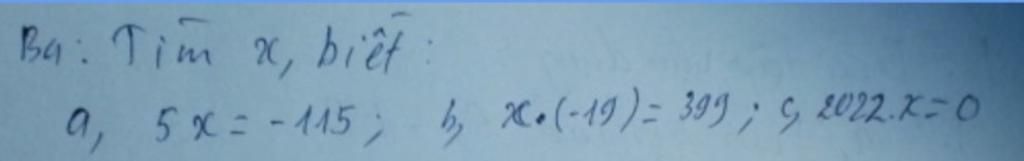 B4: Tìm x, biết:
a, 5x = -115; b, x.(-19) = 399; c, 2022.x = 0